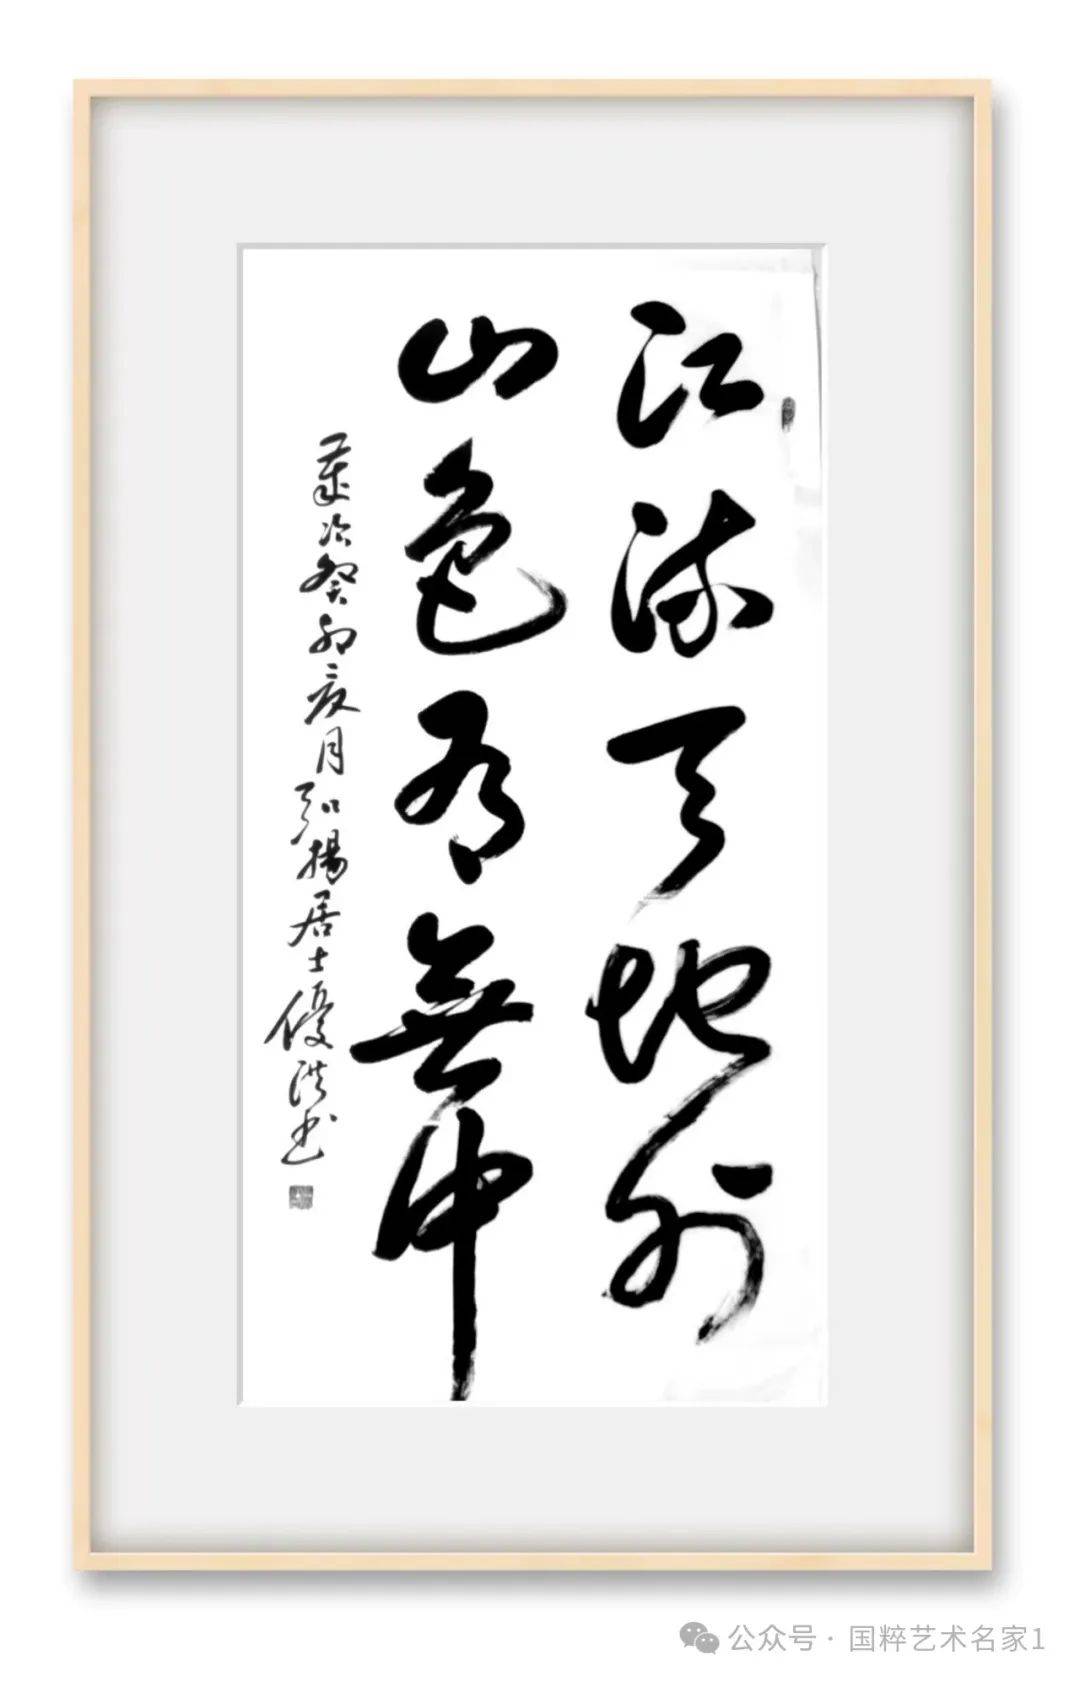 江流天地外
山色有無中
歲次癸卯亥月弘揚居士優洪书
公众号·国粹艺术名家1